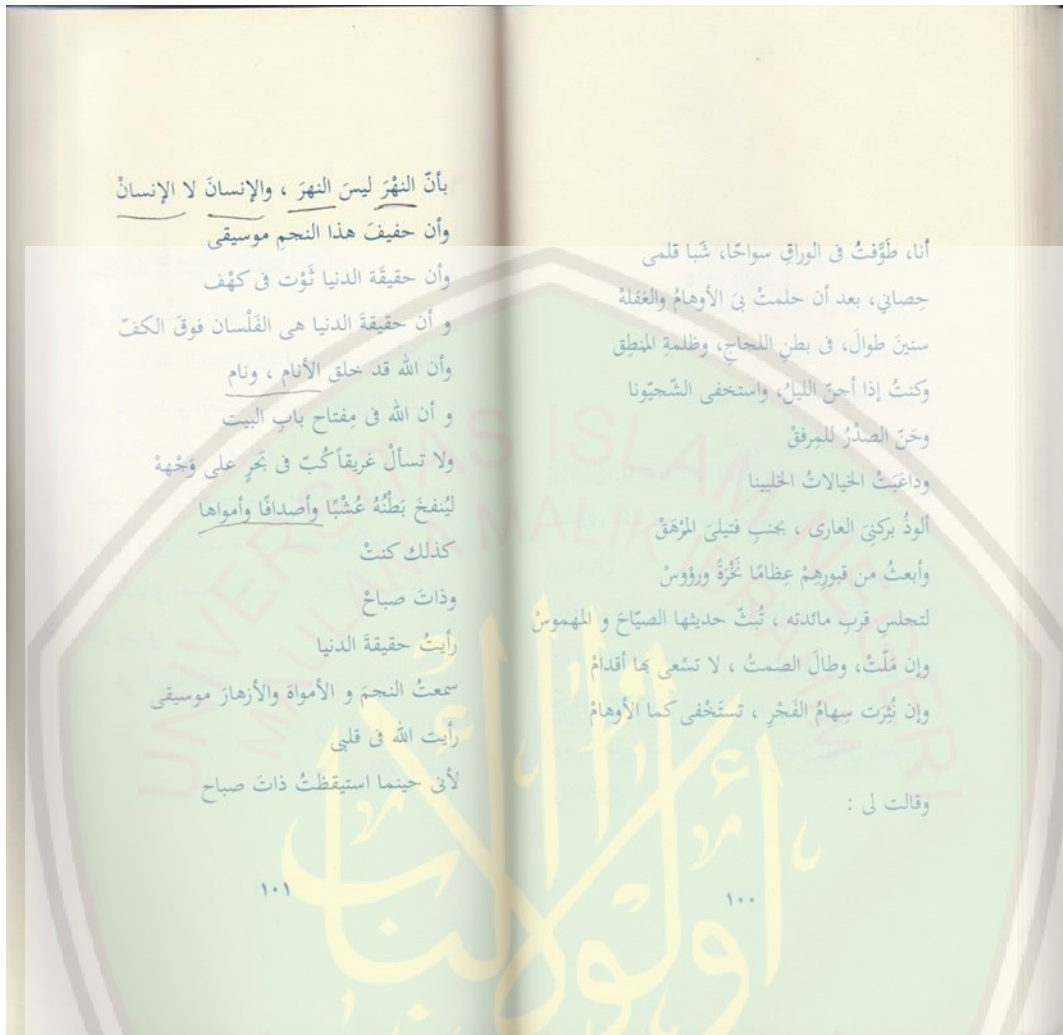 أنا، طَوَّفتُ فى الوراقِ سواحًا، شَبا قلمى
حِصاني، بعد أن حلمتْ بىَ الأوهامُ والغفلهْ
سنينَ طوالَ، فى بطنِ اللجاجِ، وظلمةِ المنطِق
وكنتُ إذا أجنّ الليلُ، واستخفى الشّجيّونا
وحَنّ الصدْرُ للمِرفقْ
وداعَبَتْ الخيالاتُ الخليينا
ألوذُ بركنِىَ العارى ، بجنبِ فتيلىَ المرْهَقْ
وأبعثُ من قبورِهِمْ عِظامًا نَخْرَةً ورؤوسْ
لتجلسِ قربِ مائدته ، تُبثّ حديثها الصيّاحَ و المهموسْ
وإن مَلّتْ، وطالَ الصمتُ ، لا تسْعى بها أقدامْ
وإن نُثِرَت سِهامُ الفَجْرِ ، تستَخْفى كما الأوهامْ
وقالت لى :
١٠٠
بأنّ النهْرَ ليسَ النهرَ ، والإنسانَ لا الإنسانْ
وأن حفيفَ هذا النجمِ موسيقى
وأن حقيقَة الدنيا ثَوْت فى كهْف
و أن حقيقةَ الدنيا هى الفَلْسان فوقَ الكفّ
وأن الله قد خلق الأنام ، ونام
و أن الله فى مِفتاح بابِ البيت
ولا تسألْ غريقاً كُبّ فى بَحرٍ على وَجْههْ
ليُنفخَ بَطْنُهُ عُشْبًا وأصدافًا وأمواها
كذلك كنتْ
وذاتَ صباحْ
رأيتُ حقيقةَ الدنيا
سمعتُ النجمَ و الأمواهَ والأزهارَ موسيقى
رأيت الله فى قلبى
لأنى حينما استيقظتُ ذاتَ صباح
١٠١
UNIVERSITAS ISLAM NEGERI
MAULANA MALIK IBRAHIM